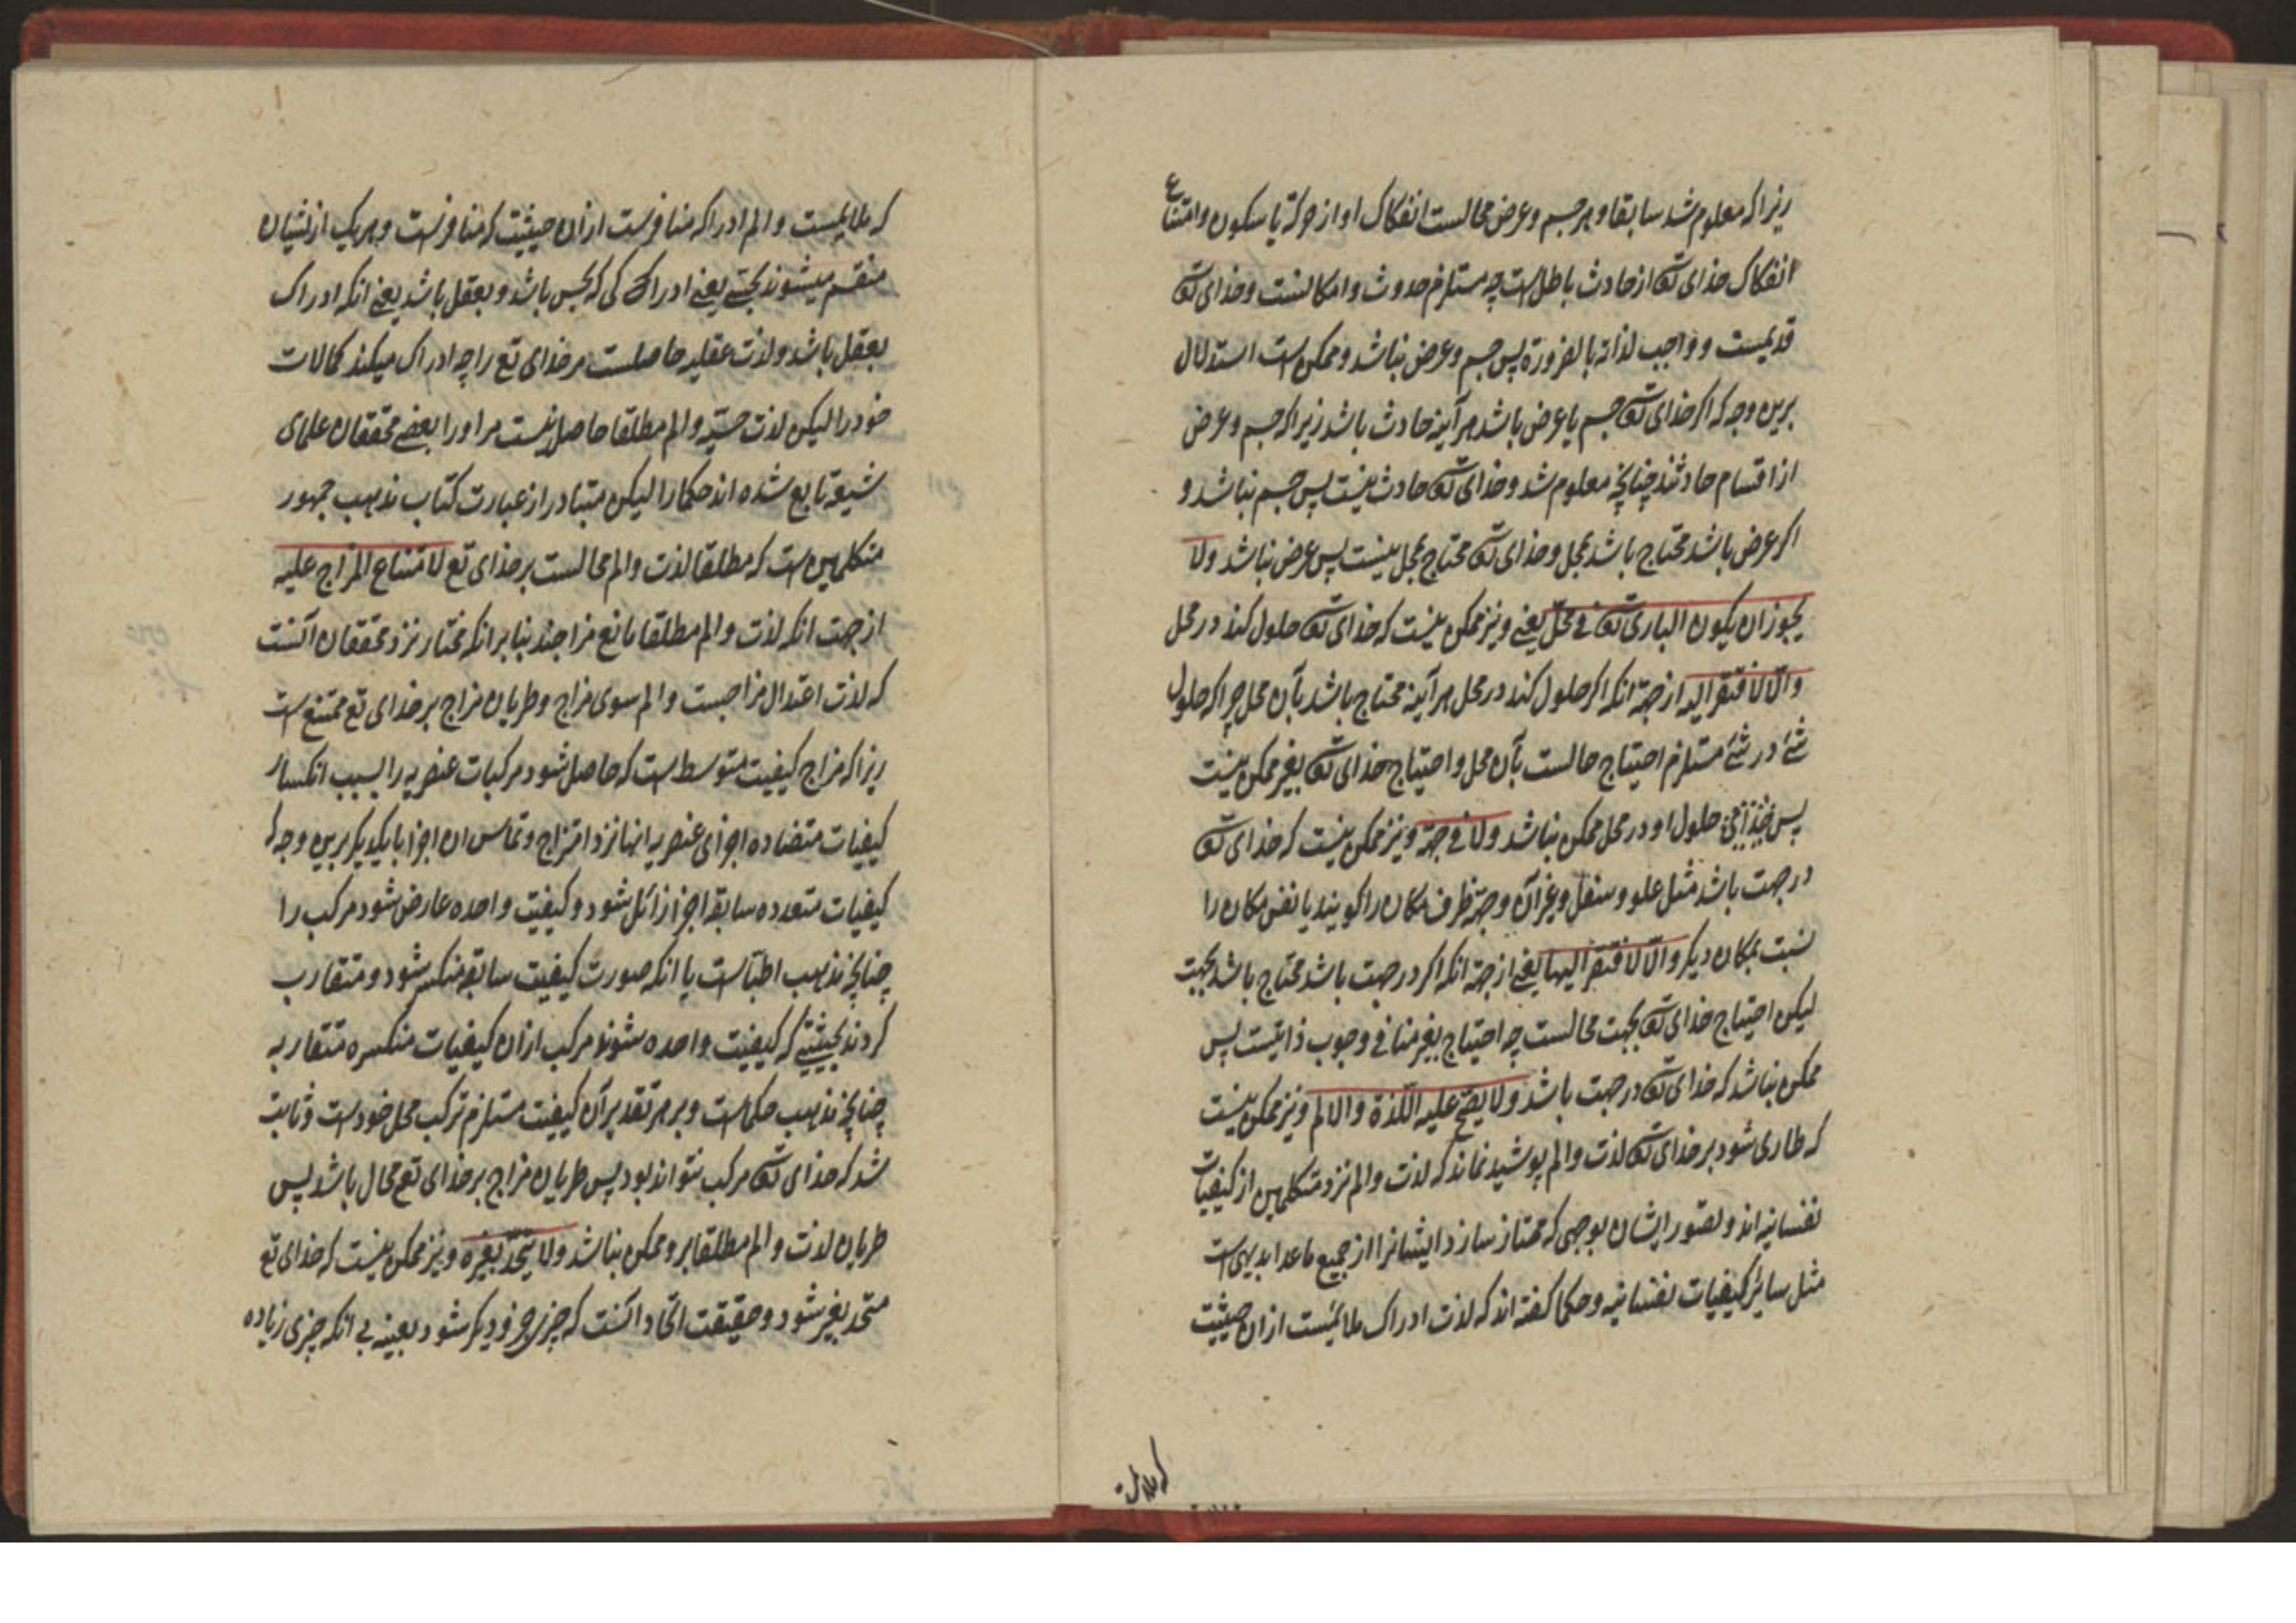 زیرا که معلوم شد سابقا و هر جسم و عرض محالست انفکاک او از حرکة یا سکون و امتناع
انفکاک خدای تعه از حادث باطل است چه مستلزم حدوث و امکانست و خدای تعه
قدیمست و واجب لذاته بالضرورة پس جسم و عرض نباشد و ممکن است استدلال
برین وجه که اکر خدای تعه جسم یا عرض باشد هر آینه حادث باشد زیرا که جسم و عرض
از اقسام حادثند چنانچه معلوم شد و خدای تعه حادث نیست پس جسم نباشد و
اکر عرض باشد محتاج باشد بمحل و خدای تعه محتاج بمحل نیست پس عرض نباشد ولا
یجوز ان یکون الباری تعه فی محلّ یعنی و نیز ممکن نیست که خدای تعه حلول کند در محل
والّا لافتقر الیه از جهة انکه اکر حلول کند در محل هر آینه محتاج باشد بآن محل چرا که حلول
شئ در شئ مستلزم احتیاج حالست بآن محل و احتیاج خدای تعه بغیر ممکن نیست
پس حلول او در محل ممکن نباشد ولا فی جهة و نیز ممکن نیست که خدای تعه
در جهت باشد مثل علو و سفل و غیر آن و جهة ظرف مکان را کویند یا نفس مکان را
نسبت بمکان دیکر والّا لافتقر الیها یعنی از جهة انکه اکر در جهت باشد محتاج باشد بجهت
لیکن احتیاج خدای تعه بجهت محالست چه احتیاج بغیر منافی وجوب ذاتیست پس
ممکن نباشد که خدای تعه در جهت باشد ولا یصح علیه اللّذة والالم و نیز ممکن نیست
که طاری شود بر خدای تعه لذت و الم پوشیده نماند که لذت و الم نزد متکلمین از کیفیات
نفسانیه اند و تصور ایشان بوجهی که ممتاز سازد ایشانرا از جمیع ماعدا بدیهی است
مثل سایر کیفیات نفسانیه و حکما کفته اند که لذت ادراک ملایمست از ان حیثیت
که ملایمست و الم ادراک منافرست از ان حیثیت که منافرست و هر یک از یشان
منقسم میشوند بحسّی یعنی ادراک کی که بحس باشد و بعقل باشد یعنی انکه ادراک
بعقل باشد و لذت عقلیه حاصلست مر خدای تع را چه ادراک میکند کمالات
خود را لیکن لذت حسّیه و الم مطلقا حاصل نیست مر او را بعضی محققان علمای
شیعه تابع شده اند حکما را لیکن متبادر از عبارت کتاب مذهب جمهور
متکلمین است که مطلقا لذت و الم محالست بر خدای تع لامتناع المزاج علیه
از جهت انکه لذت و الم مطلقا تابع مزاجند بنابر انکه مختار نزد محققان آنست
که لذت اعتدال مزاجست و الم سوی مزاج و طریان مزاج بر خدای تع ممتنع است
زیرا که مزاج کیفیت متوسط است که حاصل شود مرکبات عنصریه را بسبب انکسار
کیفیات متضاده اجزای عنصریه انها نزد امتزاج و تماس ان اجزا با یکدیکر برین وجه که
کیفیات متعدده سابقه اجزا زائل شود و کیفیت واحده عارض شود مرکب را
چنانچه مذهب اطبّاست یا انکه صورت کیفیت سابقه منکسر شود و متقارب
کردند بحیثیتی که کیفیت واحده شوند مرکب از ان کیفیات منکسره متقاربه
چنانچه مذهب حکماست و بر هر تقدیر آن کیفیت مستلزم ترکب محل خود است و ثابت
شد که خدای تعه مرکب نتواند بود پس طریان مزاج بر خدای تع محال باشد پس
طریان لذت و الم مطلقا بر و ممکن نباشد ولا یتحّد بغیره و نیز ممکن نیست که خدای تع
متحد بغیر شود و حقیقت اتحاد آنست که چیزی چیز دیکر شود بعینه بی انکه چیزی زیاده